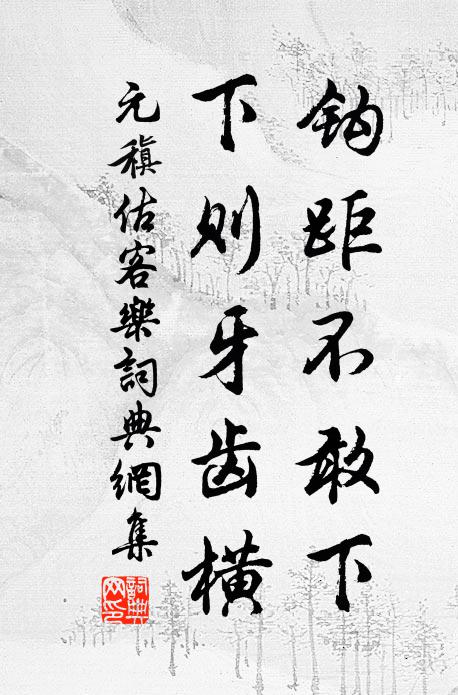 钩距不敢下
下则牙齿横
元稹估客樂詞典網集
詞典